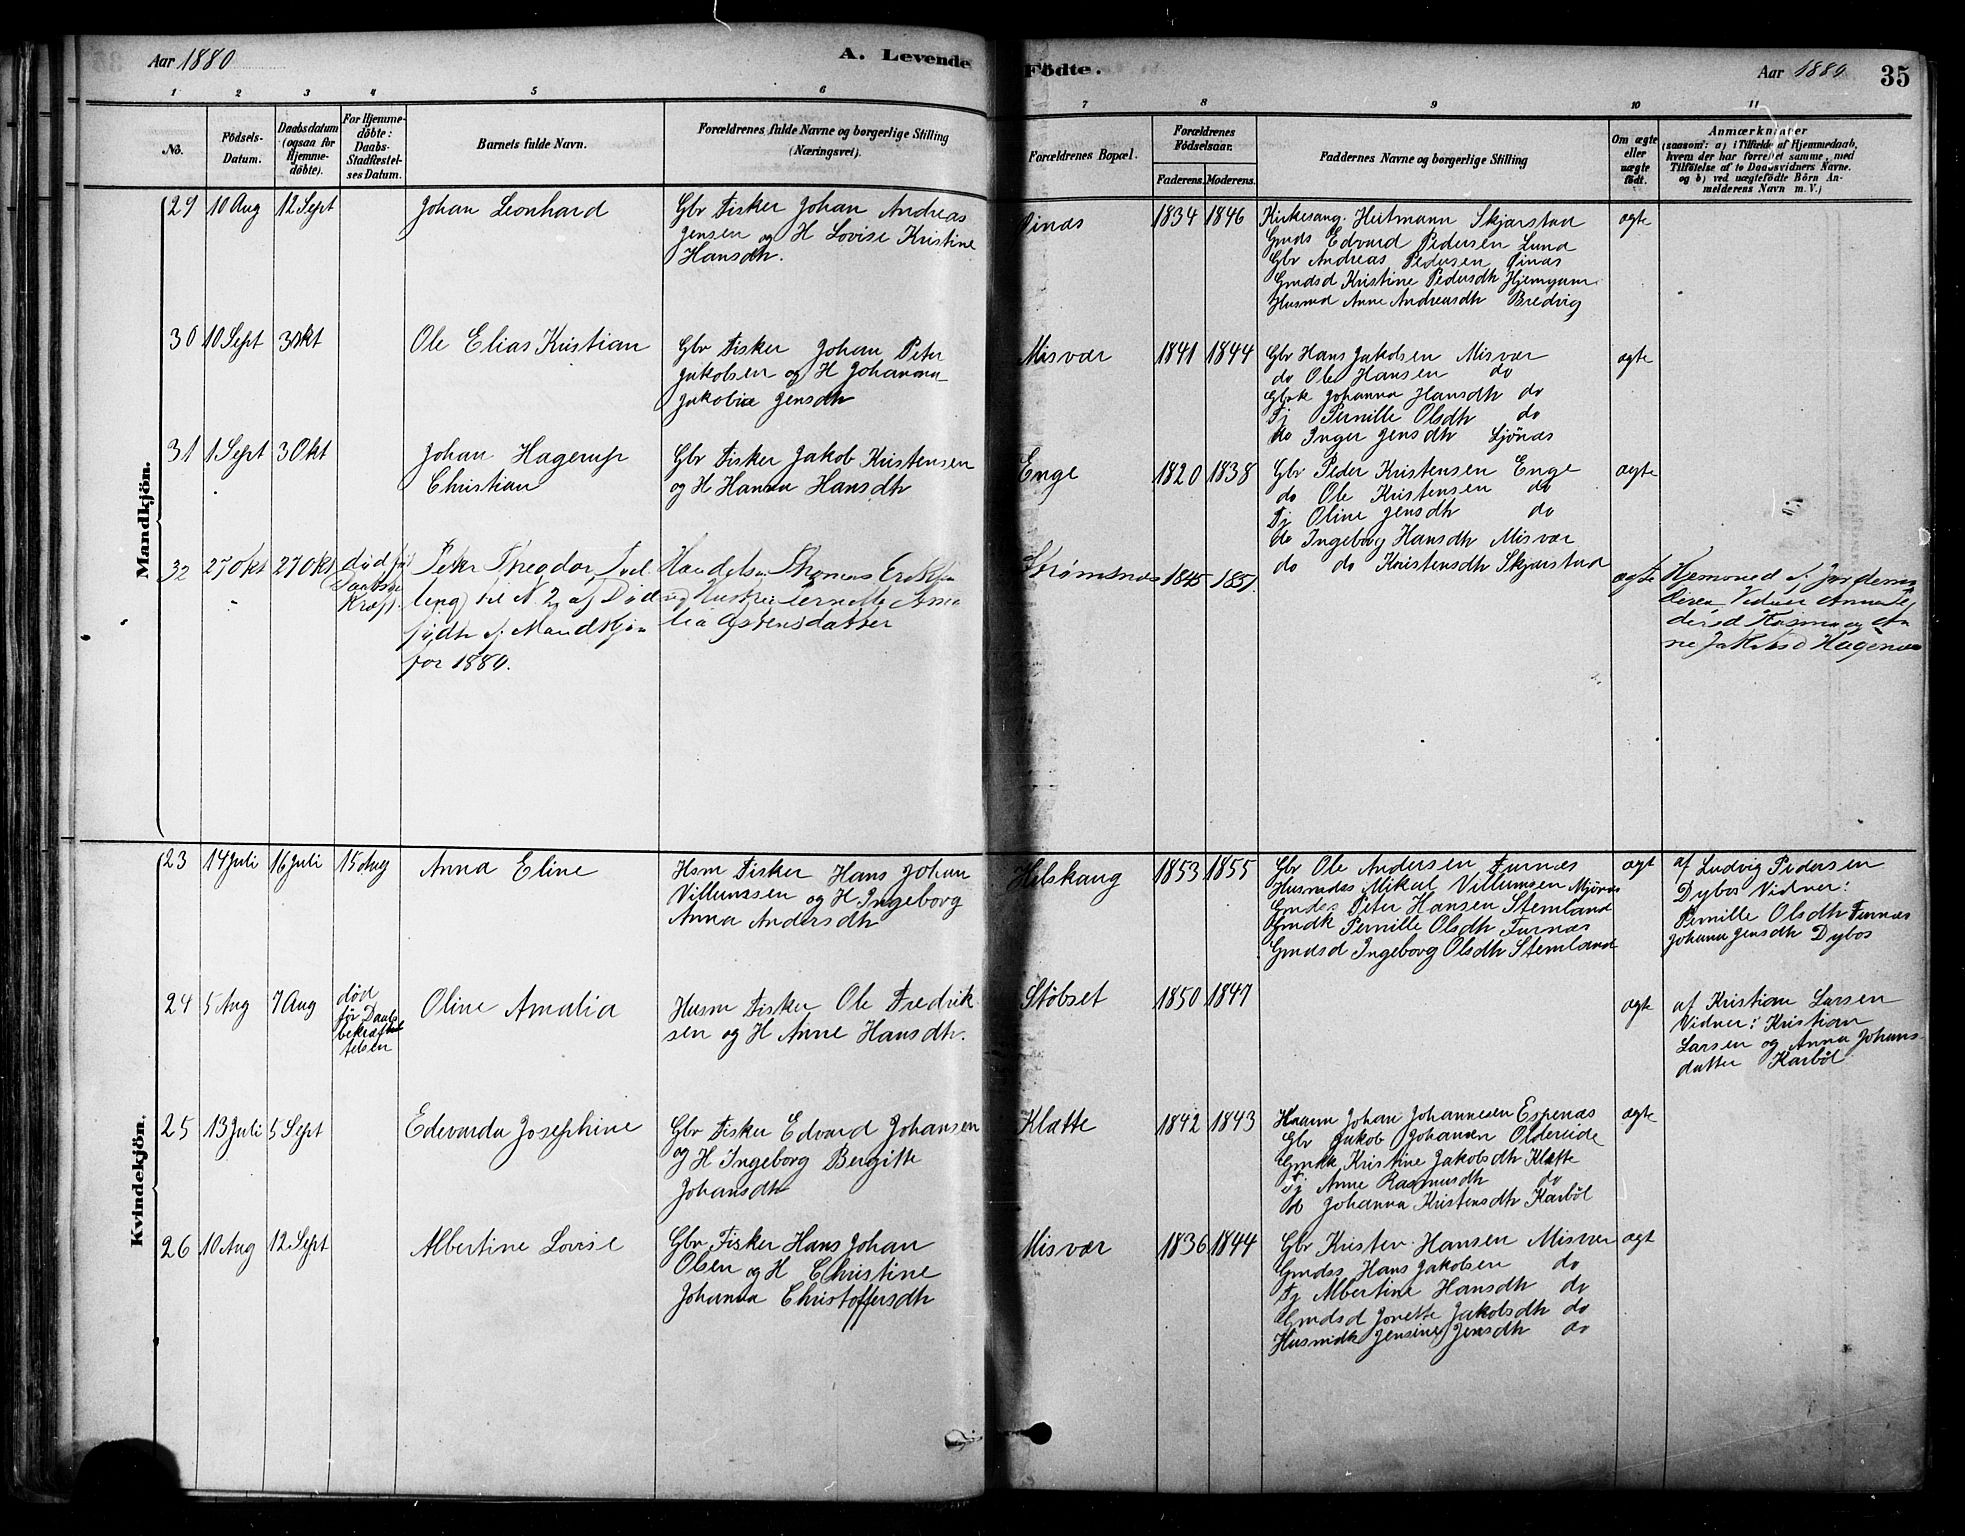 Aar 1880
A. Levende Fødte.
Aar 1880
35
1 2 3 4 5 6 7 8 9 10 11
No.
Fødsels-
Datum.
Daabsdatum
(ogsaa for
Hjemme-
døbte).
For Hjemme-
døbte:
Daabs-
Stadfæstel-
ses Datum.
Barnets fulde Navn.
Forældrenes fulde Navne og borgerlige Stilling
(Næringsvei).
Forældrenes Bopæl.
Forældrenes
Fødselsaar.
Faderens. Moderens.
Faddernes Navne og borgerlige Stilling
Om ægte
eller
uægte
født.
Anmærkninger
(saasom: a) i Tilfælde af Hjemmedaab,
hvem der har forrettet samme, med
Tilføielse af to Daabsvidners Navne.
og b) ved uægtefødte Børn An-
melderens Navn m. V.)
Mandkjön.
29 10 Aug 12 Sept
Johan Leonhard
Gbr Fisker Johan Andreas
Jensen og H Lovise Kristine
Hansdtr.
1834 1846
Kirkesang. Hertmann Skjærstad
Gmds Edvard Pedersen Lund
Gbr Andreas Pedersen
Gmdsd Kristine Pedersdtr
Husmd Anne Andreasdtr Bredvig
ægte
30 10 Sept 3 Okt
Ole Elias Kristian
Gbr Fisker Johan Peter
Jakobsen og H Johanna
Jakobia Jensdtr
Misvær
1841 1844
Gbr Hans Jakobsen Misvær
do Ole Hansen do
Gbrk Johanna Hansdtr do
Tj Pernille Olsdtr do
do Inger Jensdtr Ljönæs
ægte
31 1 Sept 3 Okt
Johan Hagerup
Christian
Gbr Fisker Jakob Kristensen
og H Hanna Hansdtr
Enge
1820 1838
Gbr Peder Kristensen Enge
do Ole Kristensen do
Tj Oline Jensdtr do
do Ingeborg Hansdtr Misvær
do do Kristensdtr Skjærstad
ægte
32 27 Okt 27 Okt
død før
Peter Theodor, Tvil
ling til N 2 af Død
fødte af Mandkjøn
for 1880.
Thomas
og Hustru Pernille Ama
lia
Strømsnæs
1845 1851
ægte
Kvindekjön.
23 14 Juli 16 Juli 15 Aug
Anna Eline
Hsm Fisker Hans Johan
Villumssen og H Ingeborg
Anna Andersdtr
1853 1855
Gbr Ole Andersen Furnæs
Mikal Villumsen
Gmds Peter Hansen Stemland
Gmdk Pernille Olsdtr Furnæs
Gmdsd Ingeborg Olsdtr Stemland
ægt
af Ludvig Pedersen
Dybos Vidner:
Pernille Olsdtr Furnæs
Johana Jensdtr Dybos
24 5 Aug 7 Aug
død
før Daabs
bekræft
telsen
Oline Amalia
Husm Fisker Ole Fredrik
sen og H Anne Hansdtr.
Stöbset
1850 1847
ægte
af Kristian Larsen
Vidner: Kristian
Larsen og Anna Johans-
datter Karböl
25 13 Juli 5 Sept
Edevarda Josephine
Gbr Fisker Edvard Johansen
og H Ingeborg Bergitte
Johansdtr
Klætte
1842 1843
Johan Johannesen Espenæs
Gbr Jakob Johansen Oldereide
Gmdk Kristine Jakobsdtr Klætte
Tj Anne Rasmusdtr do
do Johanna Kristensdtr Karböl
ægte
26 10 Aug 12 Sept
Albertine Lovise
Gbr Fisker Hans Johan
Olsen og H Christine
Johanna Christoffersdtr
Misvær
1836 1844
Gbr Kristen Hansen Misvær
Gmdss Hans Jakobsen do
Tj Albertine Hansdtr do
Gmdsd Jonette Jakobsdtr do
Jensine Jensdtr do
ægt